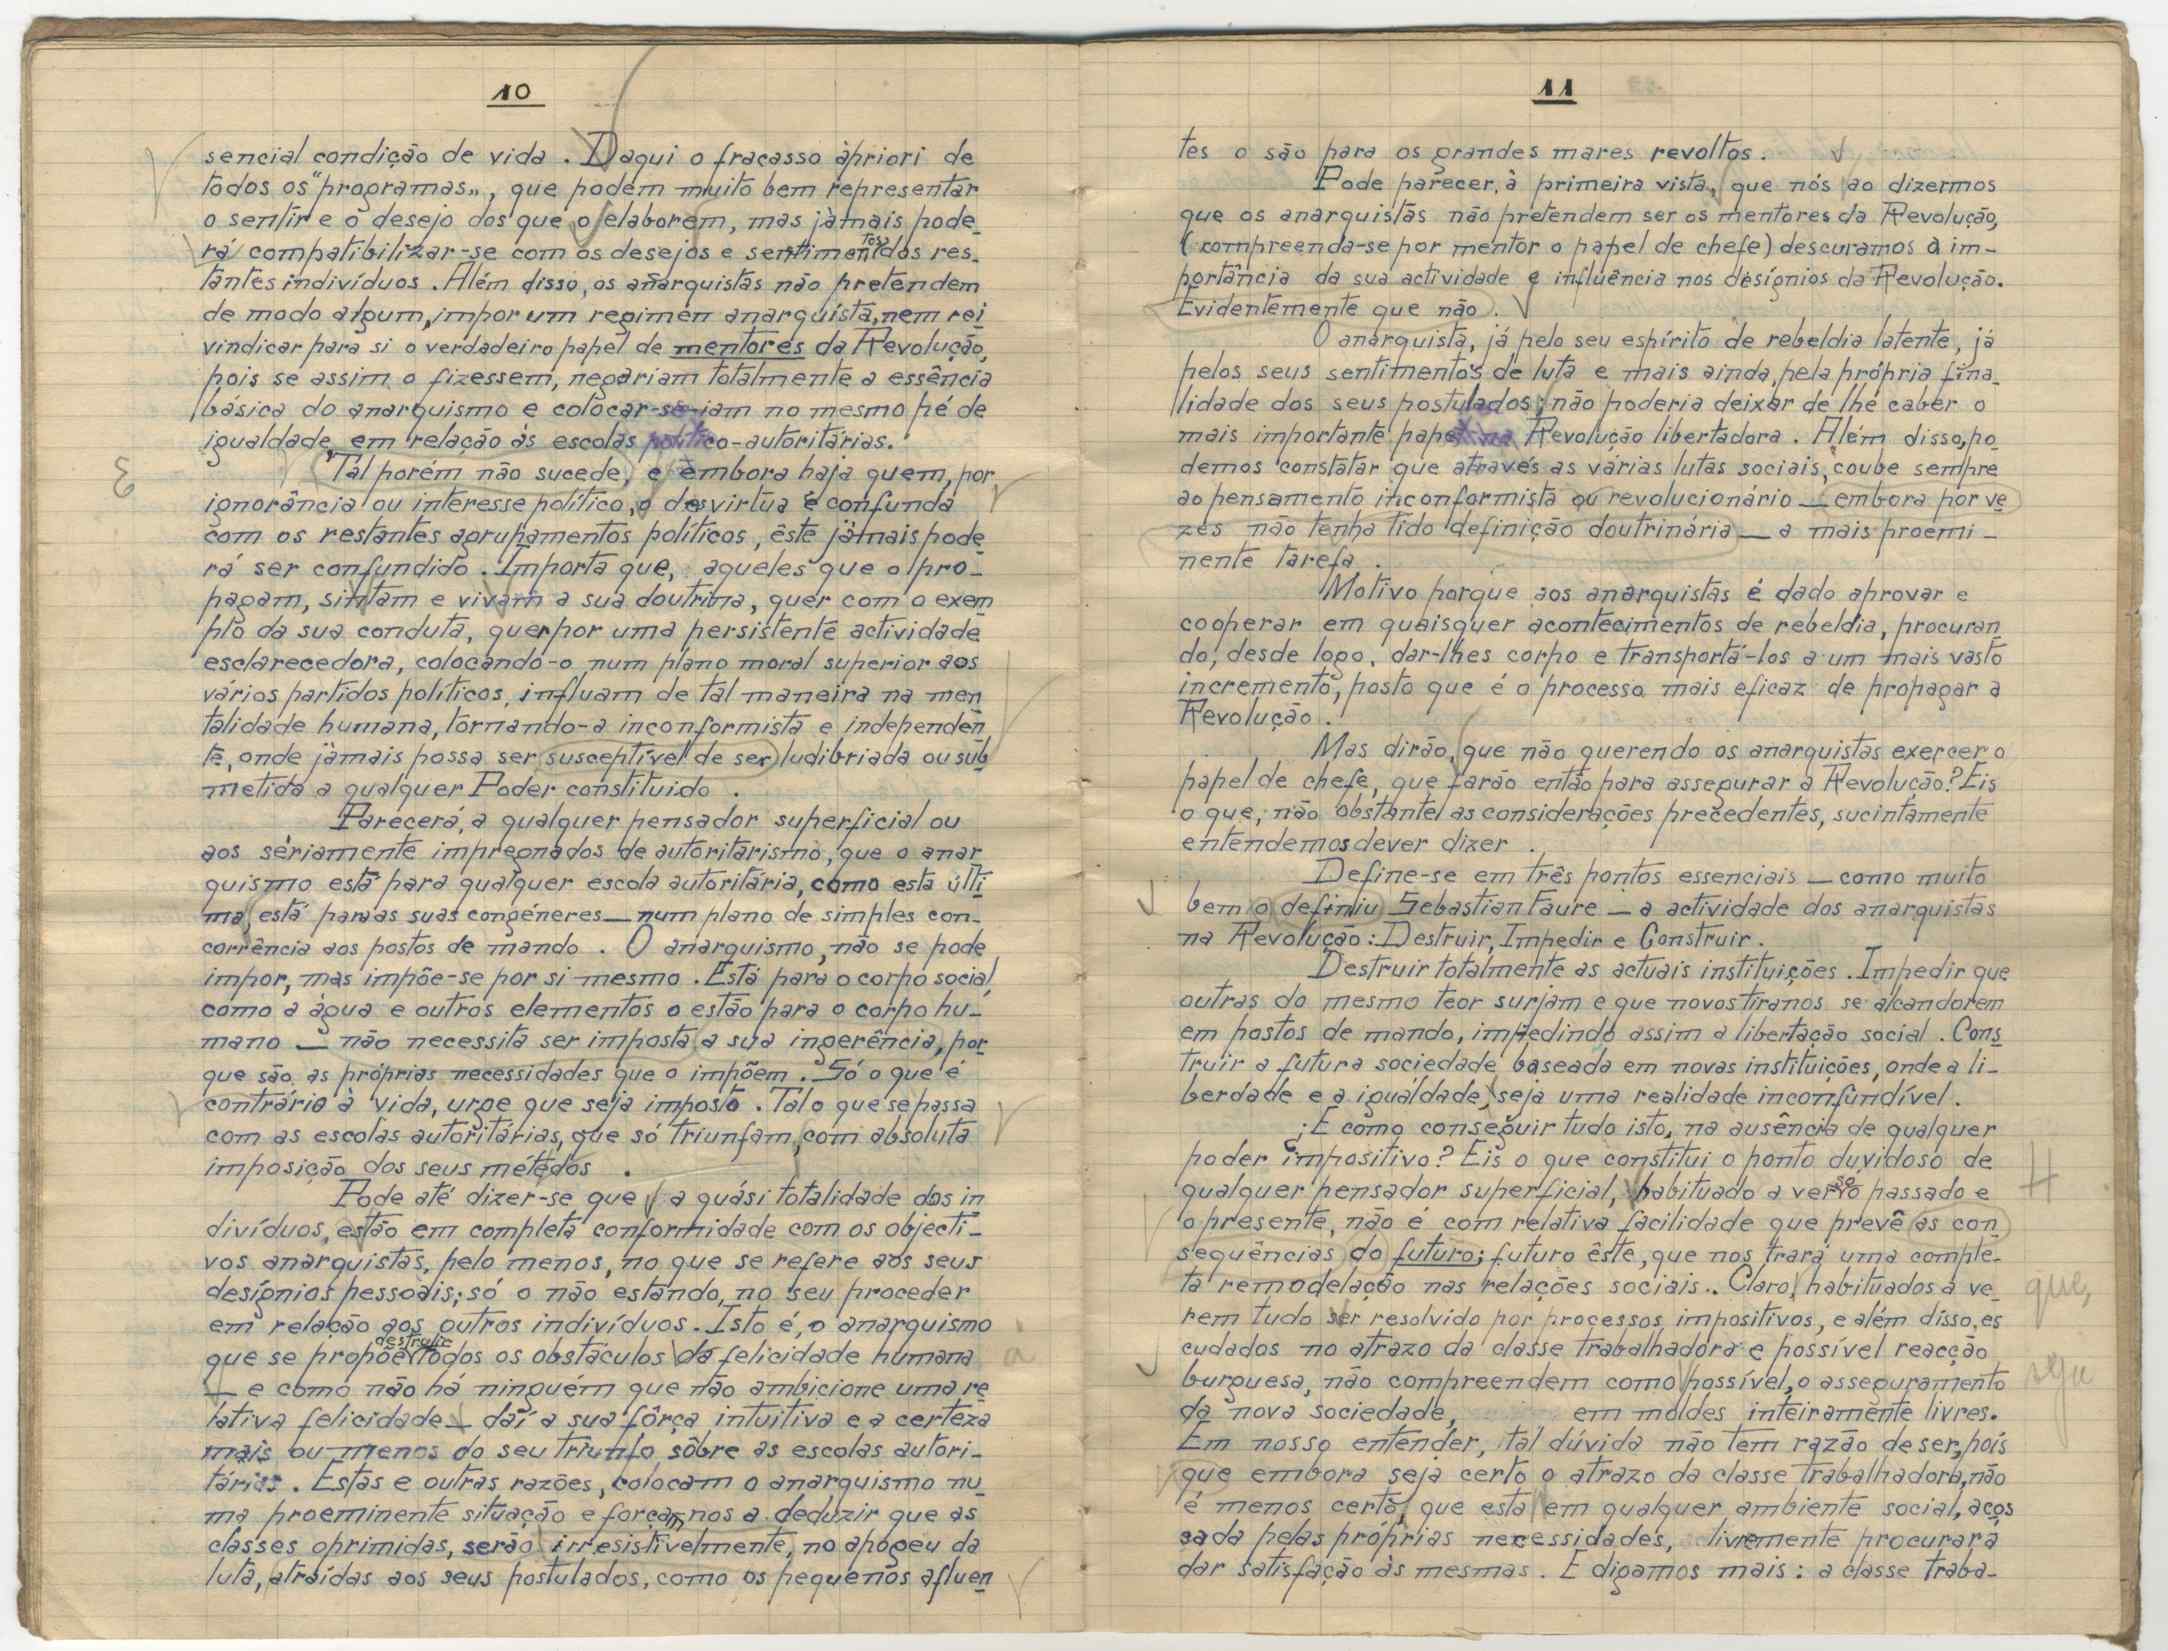 10
sencial condição de vida. Daqui o fracasso àpriori de
todos os "programas", que podem muito bem representar
o sentir e o desejo dos que o elaborem, mas jàmais pode_
rá compatibilizar-se com os desejos e sentimentos dos res_
tantes indivíduos. Além disso, os anarquistas não pretendem
de modo algum, impor um regimen anarquista, nem rei
vindicar para si o verdadeiro papel de mentores da Revolução,
pois se assim o fizessem, negariam totalmente a essência
básica do anarquismo e colocar-se-iam no mesmo pé de
igualdade, em relação às escolas político-autoritárias.
Tal porém não sucede, e embora haja quem, por
ignorância ou interesse político, o desvirtua e confunda
com os restantes agrupamentos políticos, êste jàmais pode_
rá ser confundido. Importa que, aqueles que o pro_
pagam, sintam e vivam a sua doutrina, quer com o exem
plo da sua conduta, quer por uma persistente actividade
esclarecedora, colocando-o num plano moral superior aos
vários partidos políticos, influam de tal maneira na men
talidade humana, tornando-a inconformista e independen
te, onde jàmais possa ser susceptível de ser ludibriada ou sub
metida a qualquer Poder constituido.
Parecerá, a qualquer pensador superficial ou
aos sèriamente impregnados de autoritarismo, que o anar
quismo está para qualquer escola autoritária, como esta últi
ma, está para as suas congéneres _ num plano de simples con_
corrência aos postos de mando. O anarquismo, não se pode
impor, mas impõe-se por si mesmo. Está para o corpo social,
como a água e outros elementos o estão para o corpo hu_
mano _ não necessita ser imposta a sua ingerência, por
que são as próprias necessidades que o impõem. Só o que é
contrário à vida, urge que seja imposto. Tal o que se passa
com as escolas autoritárias, que só triunfam, com absoluta
imposição dos seus métodos.
Pode até dizer-se que a quási totalidade dos in
divíduos, estão em completa conformidade com os objecti_
vos anarquistas, pelo menos, no que se refere aos seus
desígnios pessoais; só o não estando, no seu proceder
em relação aos outros indivíduos. Isto é, o anarquismo
destruir
que se propõe todos os obstáculos da felicidade humana a
_ e como não há ninguém que não ambicione uma re
lativa felicidade _ daí a sua fôrça intuitiva e a certeza
mais ou menos do seu triunfo sôbre as escolas autori_
tárias. Estas e outras razões, colocam o anarquismo nu_
ma proeminente situação e forçam nos a deduzir que as
classes oprimidas, serão irresistìvelmente, no apogeu da
luta, atraídas aos seus postulados, como os pequenos afluen
11
tes o são para os grandes mares revoltos.
Pode parecer, à primeira vista, que nós ao dizermos
que os anarquistas não pretendem ser os mentores da Revolução,
(compreenda-se por mentor o papel de chefe) descuramos a im_
portância da sua actividade e influência nos desígnios da Revolução.
Evidentemente que não.
O anarquista, já pelo seu espírito de rebeldia latente, já
pelos seus sentimentos de luta e mais ainda, pela própria fina_
lidade dos seus postulados; não poderia deixar de lhe caber o
mais importante papel na Revolução libertadora. Além disso, po
demos constatar que através as várias lutas sociais, coube sempre
ao pensamento inconformista ou revolucionário _ embora por ve
zes não tenha tido definição doutrinária _ a mais proemi_
nente tarefa.
Motivo porque aos anarquistas é dado aprovar e
cooperar em quaisquer acontecimentos de rebeldia, procuran
do, desde logo, dar-lhes corpo e transportá-los a um mais vasto
incremento, posto que é o processo mais eficaz de propagar a
Revolução.
Mas dirão, que não querendo os anarquistas exercer o
papel de chefe, que farão então para assegurar a Revolução? Eis
o que, não obstante as considerações precedentes, sucintamente
entendemos dever dizer.
Define-se em três pontos essenciais _ como muito
bem o definiu Sebastian Faure _ a actividade dos anarquistas
na Revolução: Destruir, Impedir e Construir.
Destruir totalmente as actuais instituições. Impedir que
outras do mesmo teor surjam e que novos tiranos se alcandorem
em postos de mando, impedindo assim a libertação social. Cons
truir a futura sociedade baseada em novas instituições, onde a li_
berdade e a igualdade, seja uma realidade inconfundível.
¡E como conseguir tudo isto, na ausência de qualquer
poder impositivo? Eis o que constitui o ponto duvidoso de
qualquer pensador superficial, habituado a ver só o passado e
o presente, não é com relativa facilidade que prevê as con
sequências do futuro; futuro êste, que nos trará uma comple_
ta remodelação nas relações sociais.. Claro, habituados a ve_ que,
rem tudo ser resolvido por processos impositivos, e além disso, es
cudados no atrazo da classe trabalhadora e possível reacção
burguesa, não compreendem como possível, o asseguramento seja
da nova sociedade, em moldes inteiramente livres.
Em nosso entender, tal dúvida não tem razão de ser, pois
que embora seja certo o atrazo da classe trabalhadora, não
é menos certo, que esta em qualquer ambiente social, acos
sada pelas próprias necessidades, livremente procurará
dar satisfação às mesmas. E digamos mais: a classe traba_